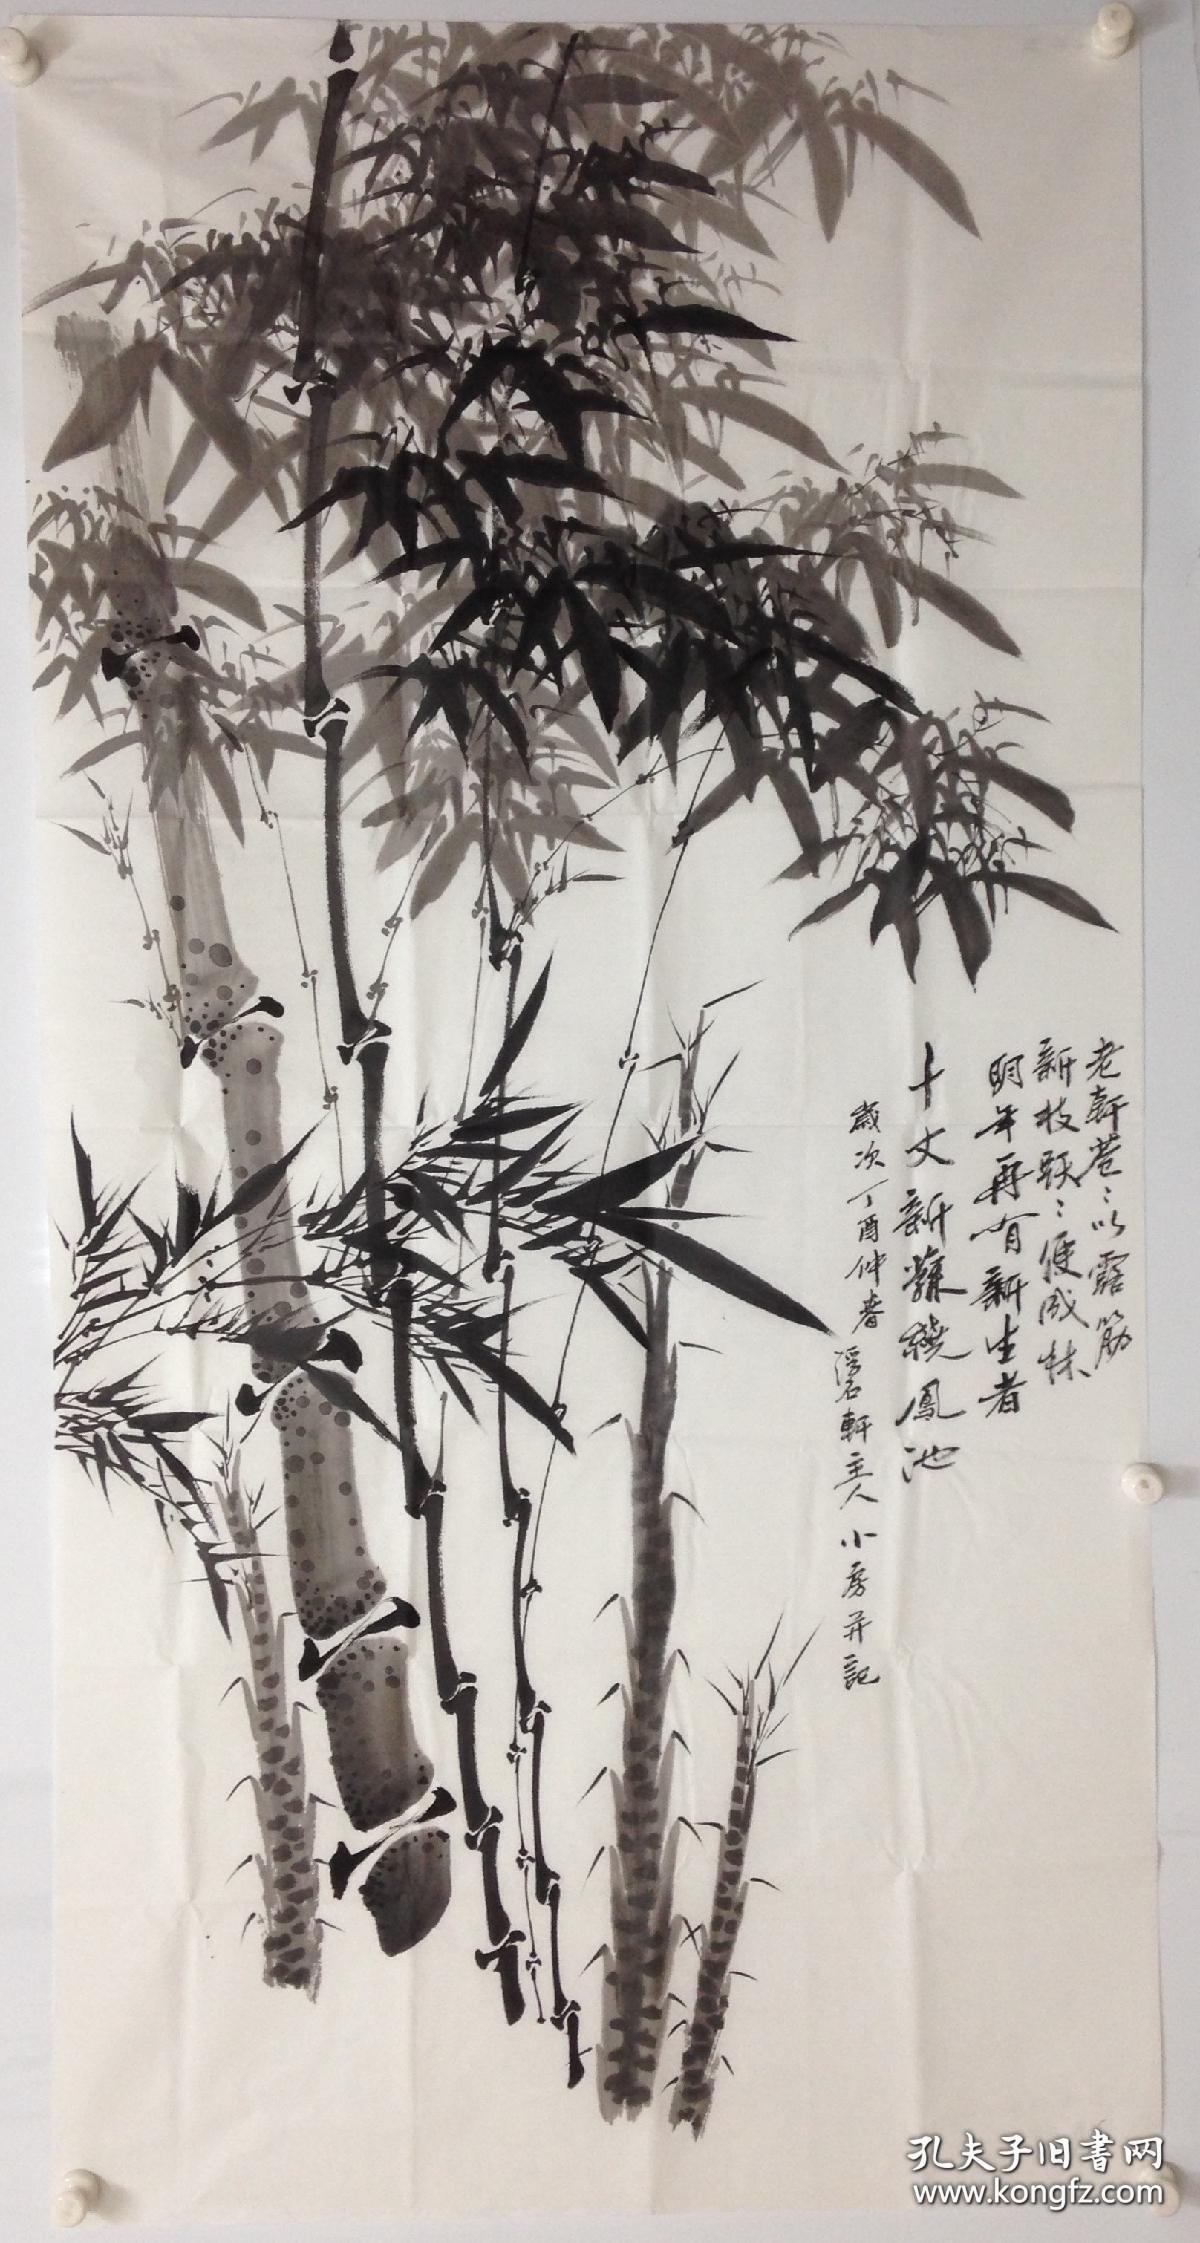 老軒蒼〻以露筋
新枝躍〻便成林
明年再有新生者
十丈新龍繞鳳池
歲次丁酉仲春 軒主人小彦并記
孔夫子旧書网
www.kongfz.com